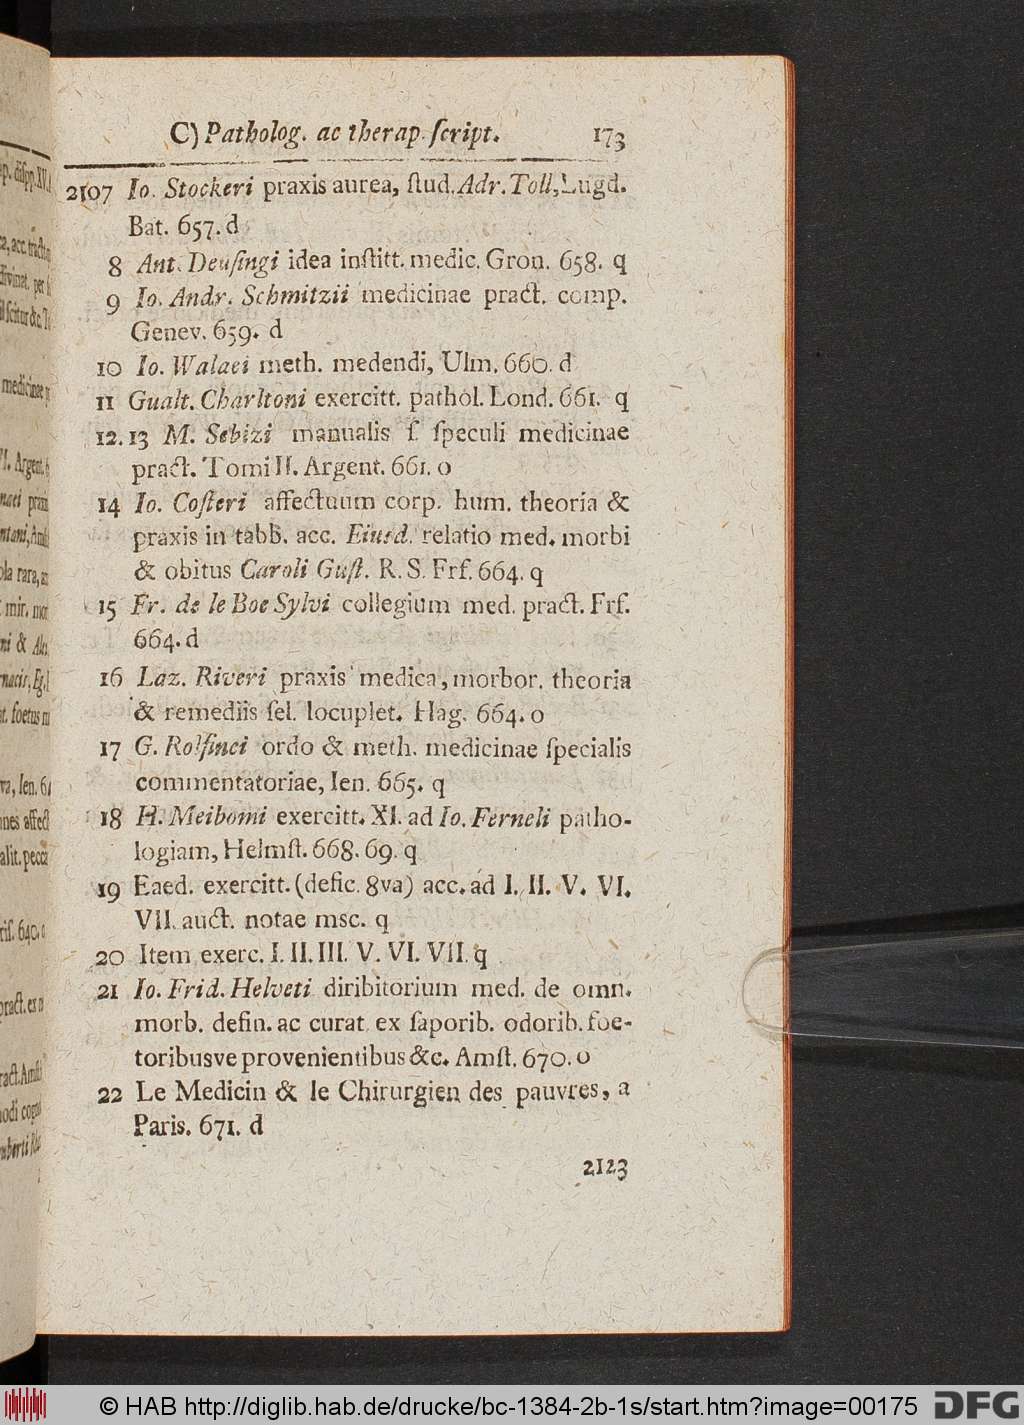 C) Patholog. ac therap. ſcript. 173
2107 Io. Stockeri praxis aurea, ſtud. Adr. Toll, Lugd.
Bat. 657. d
8 Ant. Deuſingi idea inſtitt. medic. Gron. 658. q
9 Io. Andr. Schmitzii medicinae pract. comp.
Genev. 659. d
10 Io. Walaei meth. medendi, Ulm. 660. d
11 Gualt. Charltoni exercitt. pathol. Lond. 661. q
12. 13 M. Sebizi manualis ſ. ſpeculi medicinae
pract. Tomi II. Argent. 661. o
14 Io. Coſteri affectuum corp. hum. theoria &
praxis in tabb. acc. Eiusd. relatio med. morbi
& obitus Caroli Guſt. R. S. Frf. 664. q
15 Fr. de le Boe Sylvi collegium med. pract. Frf.
664. d
16 Laz. Riveri praxis medica, morbor. theoria
& remediis ſel. locuplet. Hag. 664. o
17 G. Rolfinci ordo & meth. medicinae ſpecialis
commentatoriae, Ien. 665. q
18 H. Meibomi exercitt. XI. ad Io. Ferneli patho-
logiam, Helmſt. 668. 69. q
19 Eaed. exercitt. (defic. 8va) acc. ad I. II. V. VI.
VII. auct. notae msc. q
20 Item exerc. I. II. III. V. VI. VII. q
21 Io. Frid. Helveti diribitorium med. de omn.
morb. defin. ac curat. ex ſaporib. odorib. foe-
toribusve provenientibus &c. Amſt. 670. o
22 Le Medicin & le Chirurgien des pauvres, a
Paris. 671. d
2123
© HAB http://diglib.hab.de/drucke/bc-1384-2b-1s/start.htm?image=00175
DFG